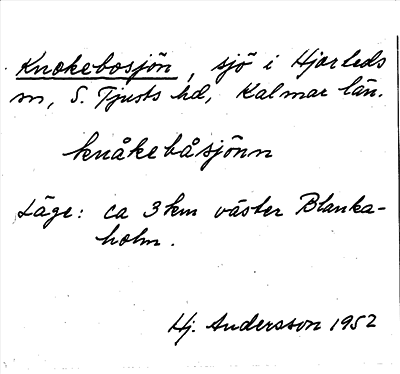 Knokebosjön, sjö i Hjorteds
sn, S. Tjusts hd, Kalmar län.
knåkebåsjönn
Läge: ca 3 km väster Blanka-
holm.
Hj. Andersson 1952